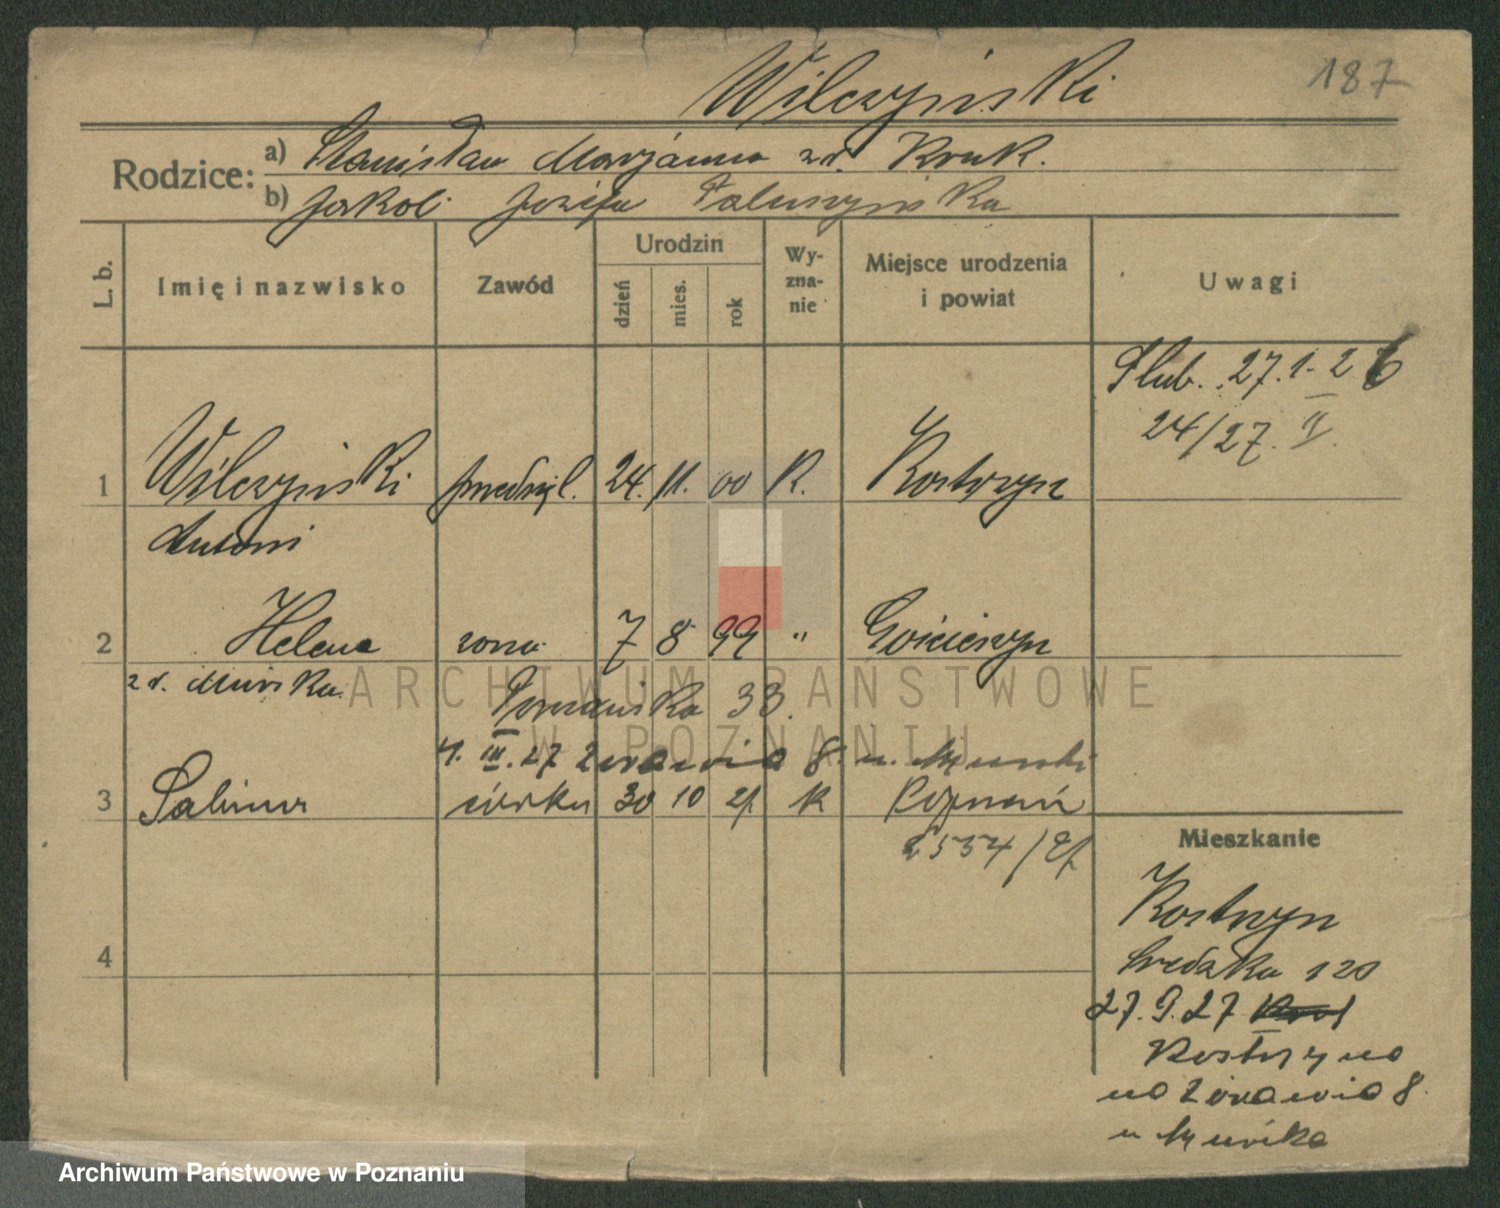 Wilczyński
187
Rodzice: a) Stanisław Marjanna zd. Kruk.
b) Jakób Józefa Paluszyńska
L. b.
Imię i nazwisko
Zawód
Urodzin
dzień
mies.
rok
Wy-
zna-
nie
Miejsce urodzenia
i powiat
Uwagi
Ślub. 27.1.26
24/27. II.
1 Wilczyński przedsięb. 24. 11. 00 K. Kostrzyn
Antoni
2 Helena żona 7 8 99 " Gościeszyn
zd.
33.
III.27 Żórawia 8
3 Sabina córka 30 10 27 K Poznań
2554/27
4
Mieszkanie
Kostrzyn
Średzka 120
27.9.27
Kostrzyna
na Żórawia 8.
u
ARCHIWUM PAŃSTWOWE
W POZNANIU
Archiwum Państwowe w Poznaniu